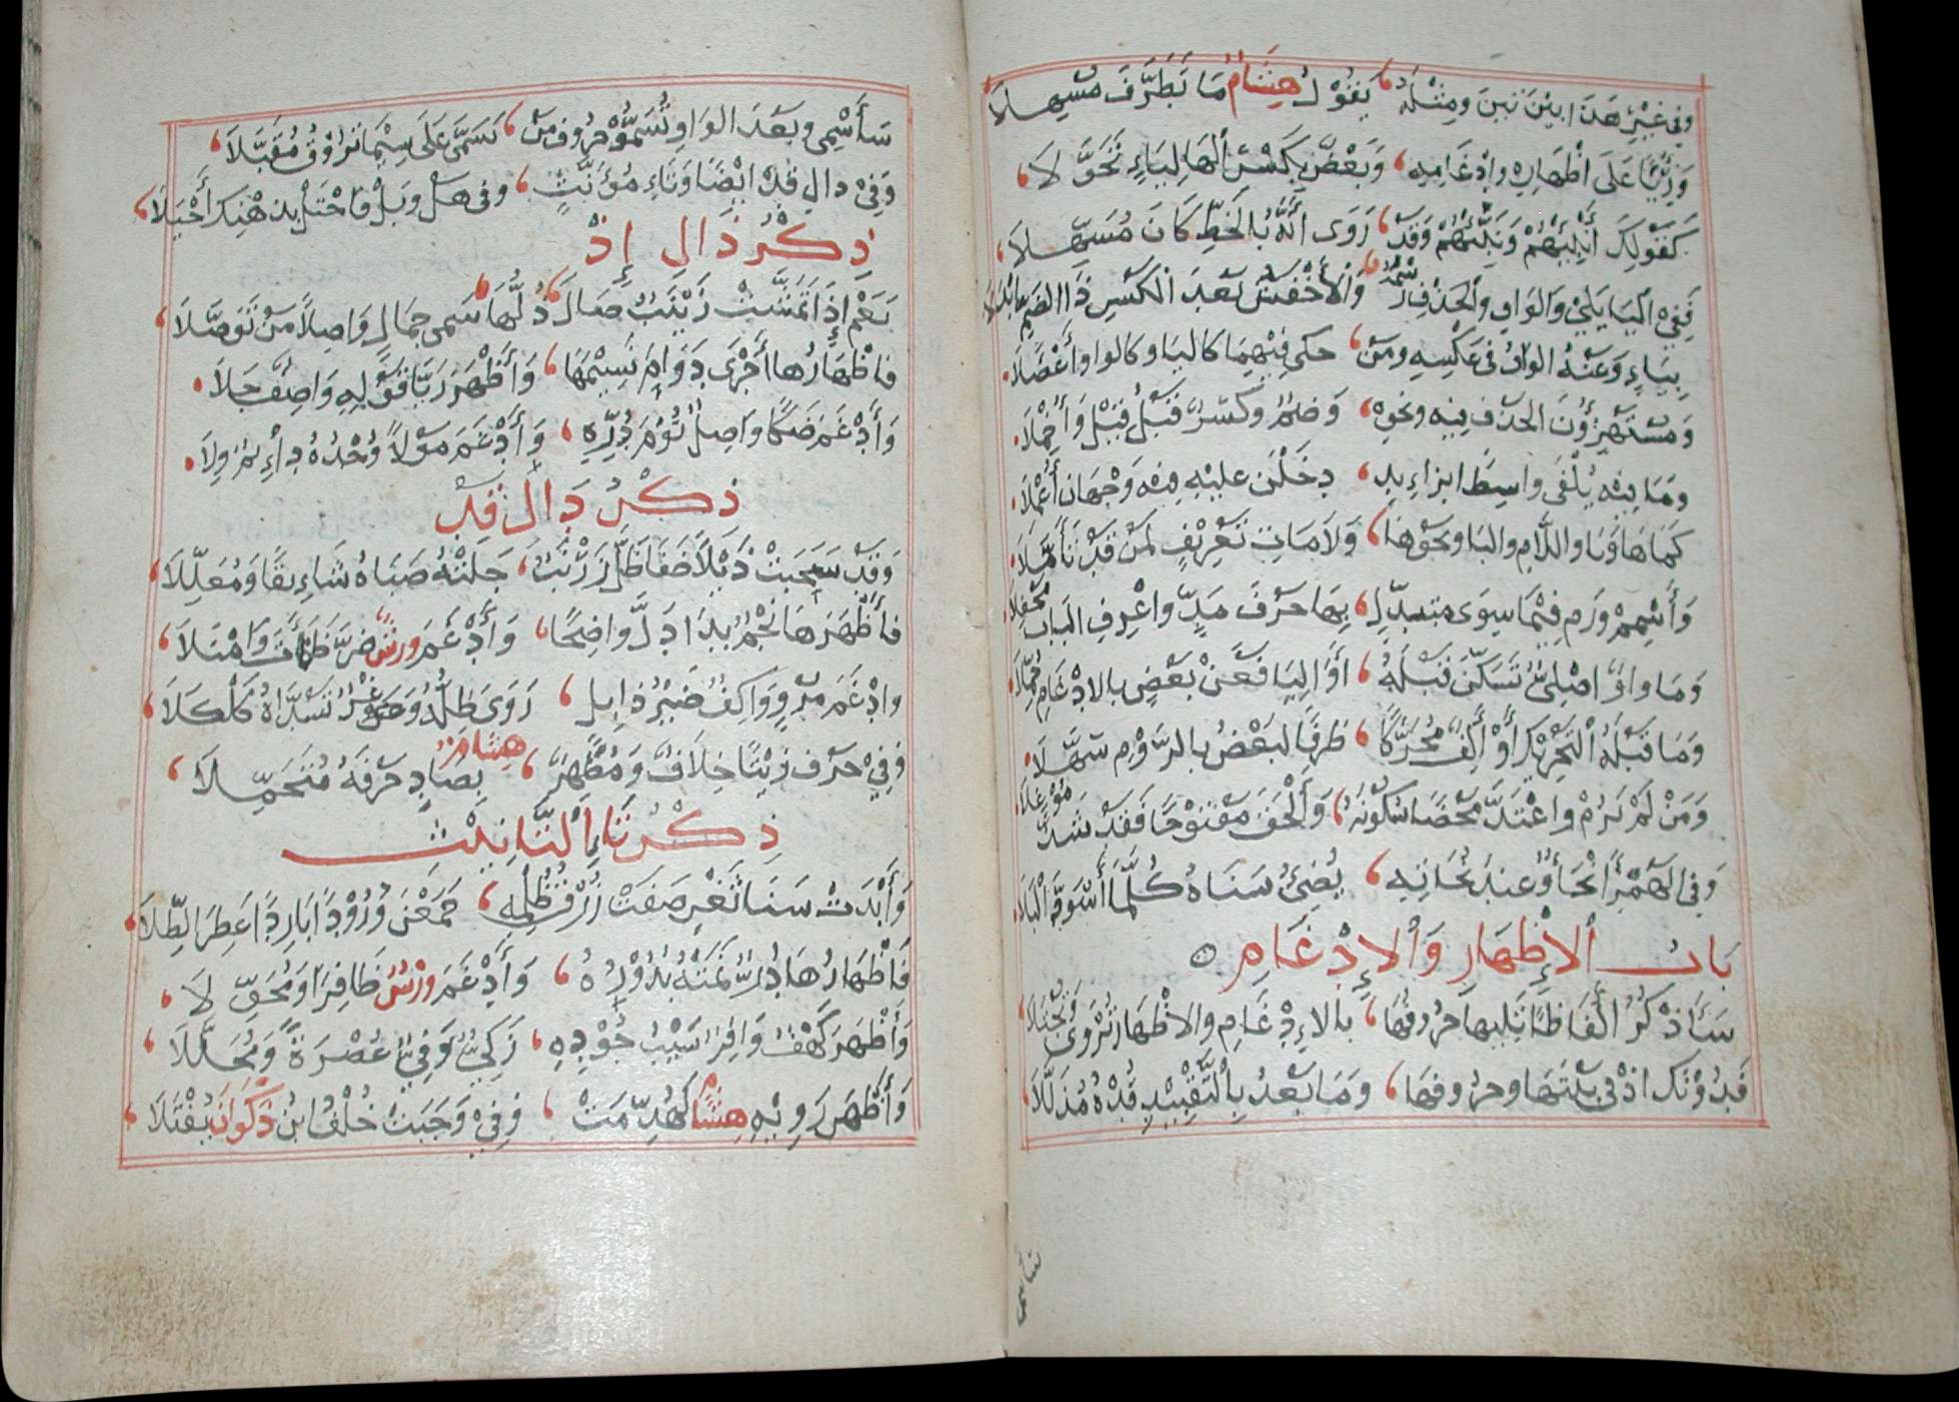 وَفِي غَيْرِ هَذَا بَيْنَ بَيْنَ وَمِثْلَهُ يَقُولُ هِشَامٌ مَا تَطَرَّفَ مُسْهِلَا
وَرِئْيًا عَلَى اظْهَارِهِ وَادْغَامِهِ وَبَعْضٌ بِكَسْرِ الْهَا لِيَاءٍ تَحَوَّلَا
كَقَوْلِكَ أَنْبِئْهُمْ وَنَبِّئْهُمْ وَقَدْ رَوَى أَنَّهُ بِالْخَطِّ كَانَ مُسَهِّلَا
فَفِي الْيَا يَلِي وَالْوَاوِ وَالْحَذْفِ رَسْمَهُ وَالْأَخْفَشُ بَعْدَ الْكَسْرِ ذَا الضَّمِّ أَبْدَلَا
بِيَاءٍ وَعَنْهُ الْوَاوُ فِي عَكْسِهِ وَمَنْ حَكَى فِيهِمَا كَالْيَا وَكَالْوَاوِ أَعْضَلَا
وَمُسْتَهْزِؤُنَ الْحَذْفُ فِيهِ وَنَحْوِهِ وَضَمٌّ وَكَسْرٌ قَبْلُ قِيلَ وَأُخْمِلَا
وَمَا فِيهِ يُلْفَى وَاسِطًا بِزَوَائِدٍ دَخَلْنَ عَلَيْهِ فِيهِ وَجْهَانِ أُعْمِلَا
كَمَا هَا وَيَا وَاللَّامِ وَالْبَا وَنَحْوِهَا وَلَامَاتِ تَعْرِيفٍ لِمَنْ قَدْ تَأَمَّلَا
وَأَشْمِمْ وَرُمْ فِيمَا سِوَى مُتَبَدِّلٍ بِهَا حَرْفَ مَدٍّ وَاعْرِفِ الْبَابَ مَحْفِلَا
وَمَا وَاوٌ اصْلِيٌّ تَسَكَّنَ قَبْلَهُ أَوِ الْيَا فَعَنْ بَعْضٍ بِالِادْغَامِ حُمِّلَا
وَمَا قَبْلَهُ التَّحْرِيكُ أَوْ أَلِفٌ مُحَرَّكًا طَرَفًا لِبَعْضُ بِالرَّوْمِ سَهَّلَا
وَمَنْ لَمْ يَرُمْ وَاعْتَدَّ مَحْضًا سُكُونَهُ وَأَلْحَقَ مَفْتُوحًا فَقَدْ شَذَّ مُوغِلَا
وَفِي الْهَمْزِ أَنْحَاءٌ وَعِنْدَ نُحَاتِهِ يُضِيءُ سَنَاهُ كُلَّمَا اسْوَدَّ أَلْيَلَا
بَابُ الْإِظْهَارِ وَالْإِدْغَامِ
سَأَذْكُرُ أَلْفَاظًا تَلِيهَا حُرُوفُهَا بِالْإِدْغَامِ وَالْإِظْهَارِ تُرْوَى وَتُجْتَلَا
فَدُونَكَ إِذْ فِي بَيْتِهَا وَحُرُوفِهَا وَمَا بَعْدُ بِالتَّقْيِيدِ قُدْهُ مُذَلَّلَا
سَأُسْمِي وَبَعْدَ الْوَاوِ تَسْمُو حُرُوفُ مَنْ تَسَمَّى عَلَى سِيمَا تَرُوقُ مُقَبَّلَا
وَفِي دَالِ قَدْ أَيْضًا وَتَاءِ مُؤَنَّثٍ وَفِي هَلْ وَبَلْ فَاحْتَلْ بِذِهْنِكَ أَحْيَلَا
ذِكْرُ ذَالِ إِذْ
نَعَمْ إِذْ تَمَشَّتْ زَيْنَبٌ صَالَ دَلُّهَا سَمِيَّ جَمَالٍ وَاصِلًا مَنْ تَوَصَّلَا
فَإِظْهَارُهَا أَجْرَى دَوَامَ نَسِيمِهَا وَأَظْهَرَ رَيَّا قَوْلِهِ وَاصِفٌ جَلَا
وَأَدْغَمَ ضَنْكًا وَاصِلٌ تُومَ دُرِّهِ وَأَدْغَمَ مَوْلًى وُجْدُهُ دَائِمٌ وِلَا
ذِكْرُ دَالِ قَدْ
وَقَدْ سَحَبَتْ ذَيْلًا ضَفَا ظَلَّ زَرْنَبٌ جَلَتْهُ صَبَاهُ شَائِقًا وَمُعَلِّلَا
فَأَظْهَرَهَا نَجْمٌ بَدَا دَلَّ وَاضِحًا وَأَدْغَمَ وَرْشٌ ضَرَّ ظَمْآنَ وَامْتَلَا
وَادْغَمَ مُرْوٍ وَاكِفٌ ضَيْرَ ذَابِلٍ زَوَى ظِلَّهُ وَغْرٌ تَسَدَّاهُ كَلْكَلَا
وَفِي حَرْفِ زَيَّنَّا خِلَافٌ وَمُظْهِرٌ هِشَامٌ بِصَادٍ حَرْفَهُ مُتَحَمِّلَا
ذِكْرُ تَاءِ التَّانِيثِ
وَأَبْدَتْ سَنَا ثَغْرٍ صَفَتْ زُرْقُ ظَلْمِهِ جَمَعْنَ وُرُودًا بَارِدًا عَطِرَ الطِّلَا
فَإِظْهَارُهَا دُرٌّ نَمَتْهُ بُدُورُهُ وَأَدْغَمَ وَرْشٌ ظَافِرًا وَمُخَوِّلَا
وَأَظْهَرَ كَهْفٌ وَافِرٌ سَيْبُ جُودِهِ زَكِيٌّ وَفِيٌّ عُصْرَةً وَمُحَلَّلَا
وَأَظْهَرَ رَاوِيهِ هِشَامٌ لَهُدِّمَتْ وَفِي وَجَبَتْ خُلْفُ ابْنِ ذَكْوَانَ يُفْتَلَا